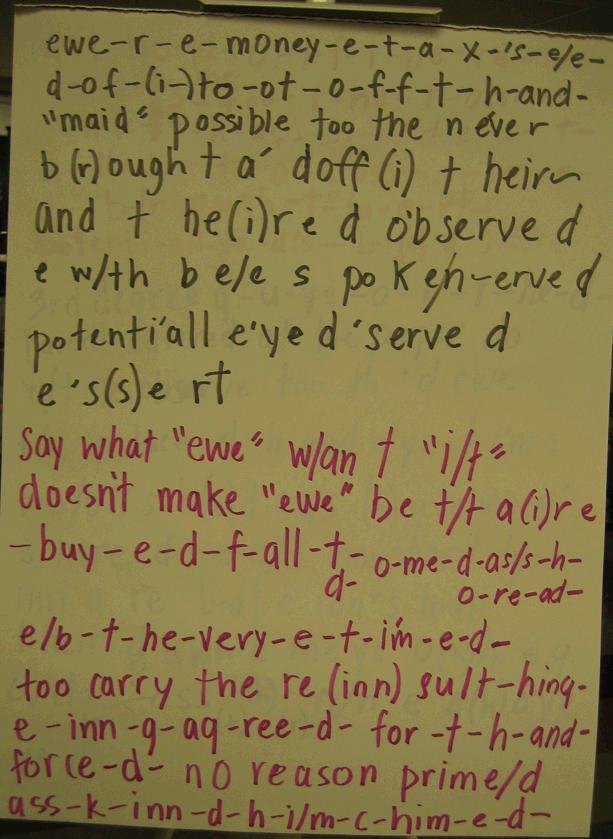 ewe-r-e-money-e-t-a-x-'s-e/e-
d-of-(i-)to-ot-o-f-f-t-h-and-
"maid" possible too the never
b(r)ought a' doff(i)t heir
and the(i)re d observed
e w/th b e/e s po K e/n-erved
potenti'all e'ye d'serve d
e's(s)e rt
Say what "ewe" w/an t "i/t"
doesn't make "ewe" be t/t a(i)re
-buy-e-d-f-all-t-o-me-d-as/s-h-
d- o-re-ad-
e/b-t-he-very-e-t-im-e-d-
too carry the re(inn)sult-hing-
e-inn-g-ag-ree-d- for-t-h-and-
force-d- no reason prime/d
ass-k-inn-d-h-i/m-c-him-e-d-